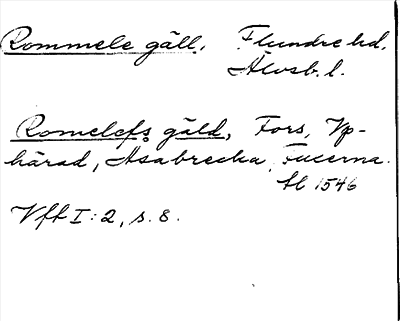 Rommele gäll, Flundre hd.
Älvsb. l.
Romelefs gäld, Fors, Vp-
härad, Asabrecka, Fucerna.
Hl 1546
Vfh I:2, s. 8.